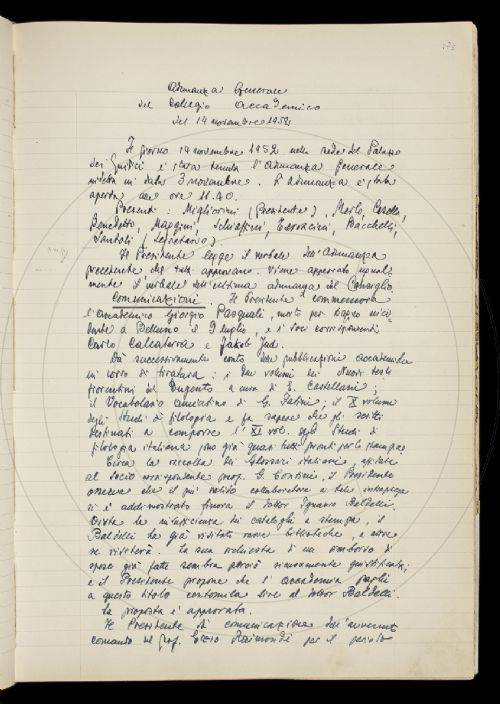 173
Adunanza Generale
del Collegio Accademico
del 14 novembre 1952
Il giorno 14 novembre 1952 nella sede del Palazzo
dei Giudici è stata tenuta l'Adunanza generale
indetta in data 3 novembre. L'Adunanza è stata
aperta alle ore 11.40.
Presenti: Migliorini (Presidente), Merlo, Casella,
Benedetto, Maggini, Schiaffini, Terracini, Bacchelli,
Santoli (Segretario)
Il Presidente legge il verbale dell'Adunanza
precedente che tutti approvano. Viene approvato ugual-
mente il verbale dell'ultima adunanza del Consiglio.
Comunicazioni. Il Presidente commemora
l'Accademico Giorgio Pasquali, morto per tragico inci-
dente a Belluno il 9 luglio, e i soci corrispondenti
Carlo Calcaterra e Jakob Jud.
Dà successivamente conto delle pubblicazioni accademiche
in corso di tiratura: i due volumi dei Nuovi testi
fiorentini del Dugento a cura di E. Castellani;
il Vocabolario amiatino di G. Fatini; il X volume
degli Studi di filologia e fa sapere che gli scritti
destinati a comporre l'XI vol. degli Studi di
filologia italiana sono già quasi tutti pronti per la stampa.
Circa la raccolta dei Glossari italiani, affidata
al Socio corrispondente prof. G. Contini, il Presidente
osserva che il più valido collaboratore a tale intrapresa
si è addimostrato finora il dottor Ignazio Baldelli.
Data la insufficienza dei cataloghi a stampa, il
Baldelli ha già visitato varie biblioteche, e altre
ne visiterà. La sua richiesta di un rimborso di
spese già fatte sembra perciò sicuramente giustificata;
e il Presidente propone che l'Accademia paghi
a questo titolo centomila lire al dottor Baldelli.
La proposta è approvata.
Il Presidente dà comunicazione dell'avvenuto
comando del prof. Ezio Raimondi per il periodo